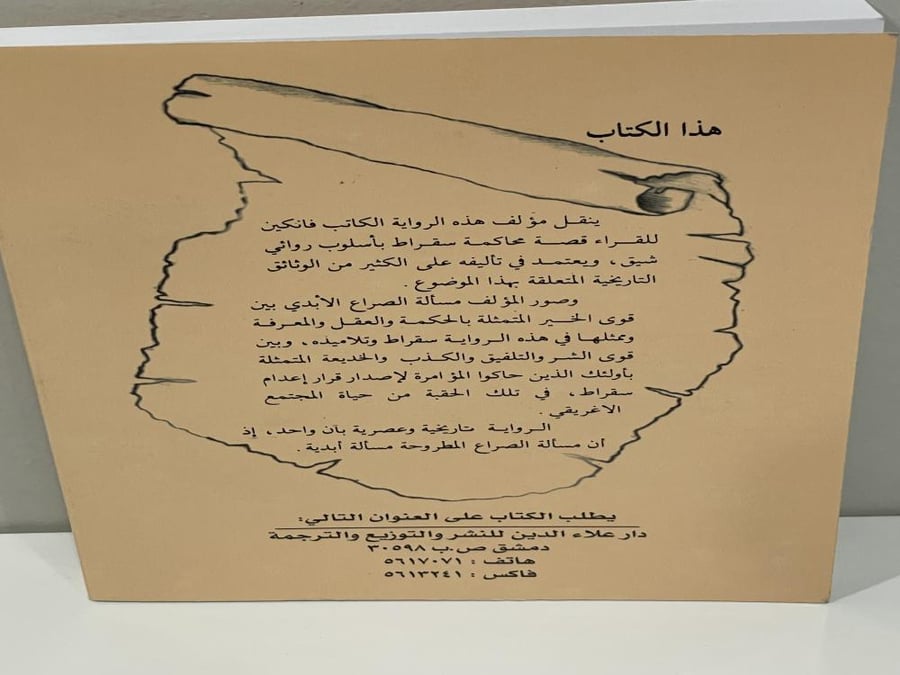 هذا الكتاب
ينقل مؤلف هذه الرواية الكاتب فانكين
للقراء قصة محاكمة سقراط بأسلوب روائي
شيق، ويعتمد في تأليفه على الكثير من الوثائق
التاريخية المتعلقة بهذا الموضوع .
وصور المؤلف مسألة الصراع الأبدي بين
قوى الخير المتمثلة بالحكمة والعقل والمعرفة
وبمثلها في هذه الرواية سقراط وتلاميذه، وبين
قوى الشر والتلفيق والكذب والخديعة المتمثلة
بأولئك الذين حاكوا المؤامرة لإصدار قرار إعدام
سقراط، في تلك الحقبة من حياة المجتمع
الاغريقي .
الرواية تاريخية وعصرية بآن واحد، إذ
أن مسألة الصراع المطروحة مسألة أبدية .
يطلب الكتاب على العنوان التالي:
دار علاء الدين للنشر والتوزيع والترجمة
دمشق ص.ب ٣٠٥٩٨
هاتف : ٥٦١٧٠٧١
فاكس : ٥٦١٣٢٤١